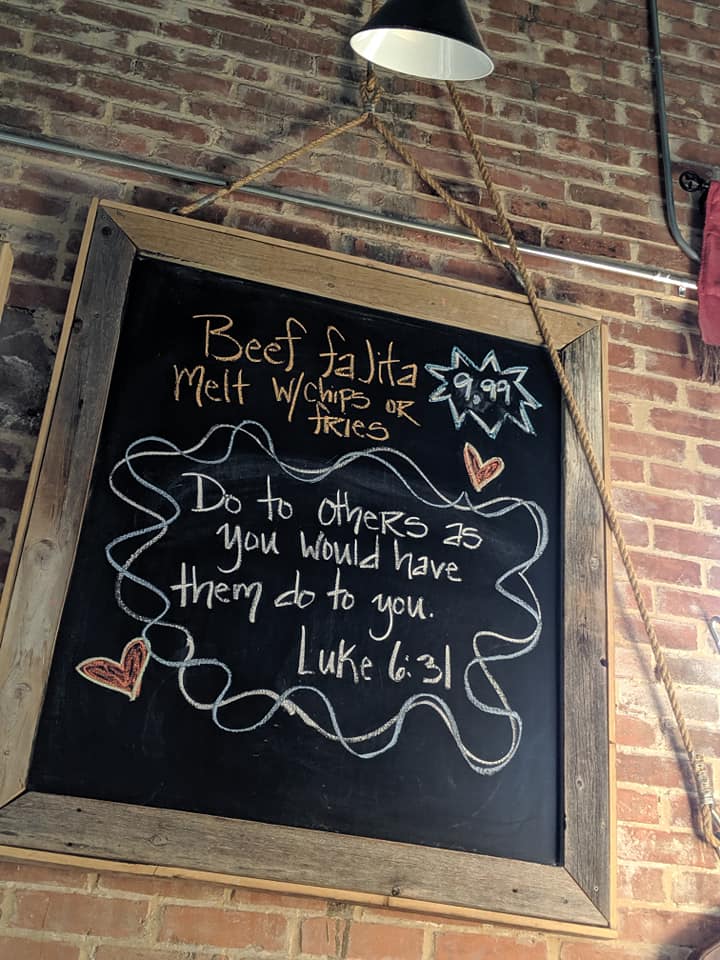 Beef fajita
Melt w/chips or
fries
9.99
Do to others as
you would have
them do to you.
Luke 6:31